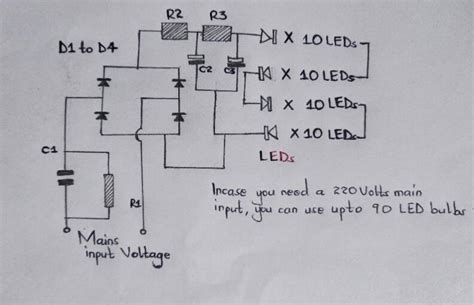 R2 R3
D1 to D4
X 10 LEDs
C2 C3
X 10 LEDs
X 10 LEDs
X 10 LEDs
C1
LEDs
R1
Incase you need a 220Volts main
input, you can use upto 90 LED bulbs
Mains
input Voltage